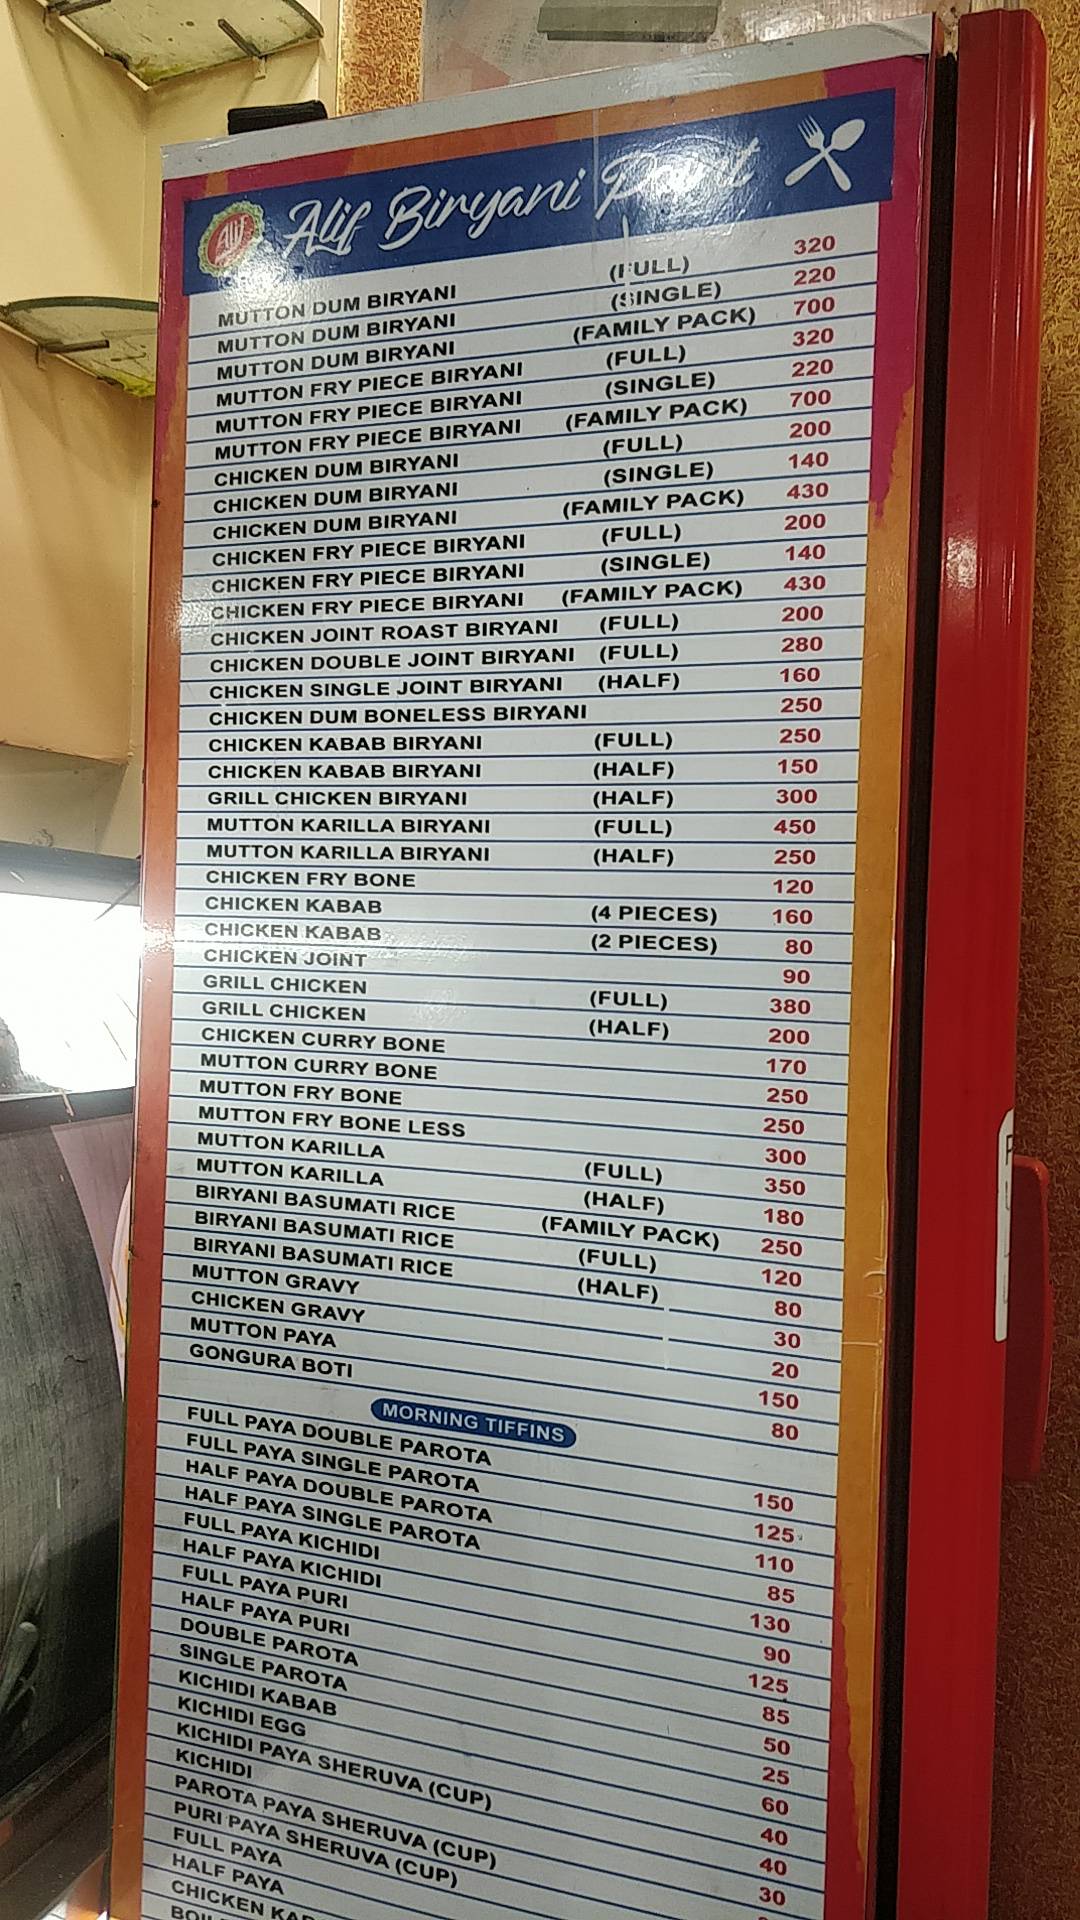 Alif
Alif Biryani Point
MUTTON DUM BIRYANI (FULL) 320
MUTTON DUM BIRYANI (SINGLE) 220
MUTTON DUM BIRYANI (FAMILY PACK) 700
MUTTON FRY PIECE BIRYANI (FULL) 320
MUTTON FRY PIECE BIRYANI (SINGLE) 220
MUTTON FRY PIECE BIRYANI (FAMILY PACK) 700
CHICKEN DUM BIRYANI (FULL) 200
CHICKEN DUM BIRYANI (SINGLE) 140
CHICKEN DUM BIRYANI (FAMILY PACK) 430
CHICKEN FRY PIECE BIRYANI (FULL) 200
CHICKEN FRY PIECE BIRYANI (SINGLE) 140
CHICKEN FRY PIECE BIRYANI (FAMILY PACK) 430
CHICKEN JOINT ROAST BIRYANI (FULL) 200
CHICKEN DOUBLE JOINT BIRYANI (FULL) 280
CHICKEN SINGLE JOINT BIRYANI (HALF) 160
CHICKEN DUM BONELESS BIRYANI 250
CHICKEN KABAB BIRYANI (FULL) 250
CHICKEN KABAB BIRYANI (HALF) 150
GRILL CHICKEN BIRYANI (HALF) 300
MUTTON KARILLA BIRYANI (FULL) 450
MUTTON KARILLA BIRYANI (HALF) 250
CHICKEN FRY BONE 120
CHICKEN KABAB (4 PIECES) 160
CHICKEN KABAB (2 PIECES) 80
CHICKEN JOINT 90
GRILL CHICKEN (FULL) 380
GRILL CHICKEN (HALF) 200
CHICKEN CURRY BONE 170
MUTTON CURRY BONE 250
MUTTON FRY BONE 250
MUTTON FRY BONE LESS 300
MUTTON KARILLA (FULL) 350
MUTTON KARILLA (HALF) 180
BIRYANI BASUMATI RICE (FAMILY PACK) 250
BIRYANI BASUMATI RICE (FULL) 120
BIRYANI BASUMATI RICE (HALF) 80
MUTTON GRAVY 30
CHICKEN GRAVY 20
MUTTON PAYA 150
GONGURA BOTI 80
MORNING TIFFINS
FULL PAYA DOUBLE PAROTA 150
FULL PAYA SINGLE PAROTA 125
HALF PAYA DOUBLE PAROTA 110
HALF PAYA SINGLE PAROTA 85
FULL PAYA KICHIDI 130
HALF PAYA KICHIDI 90
FULL PAYA PURI 125
HALF PAYA PURI 85
DOUBLE PAROTA 50
SINGLE PAROTA 25
KICHIDI KABAB 60
KICHIDI EGG 40
KICHIDI PAYA SHERUVA (CUP) 40
KICHIDI 30
PAROTA PAYA SHERUVA (CUP)
PURI PAYA SHERUVA (CUP)
FULL PAYA
HALF PAYA
CHICKEN